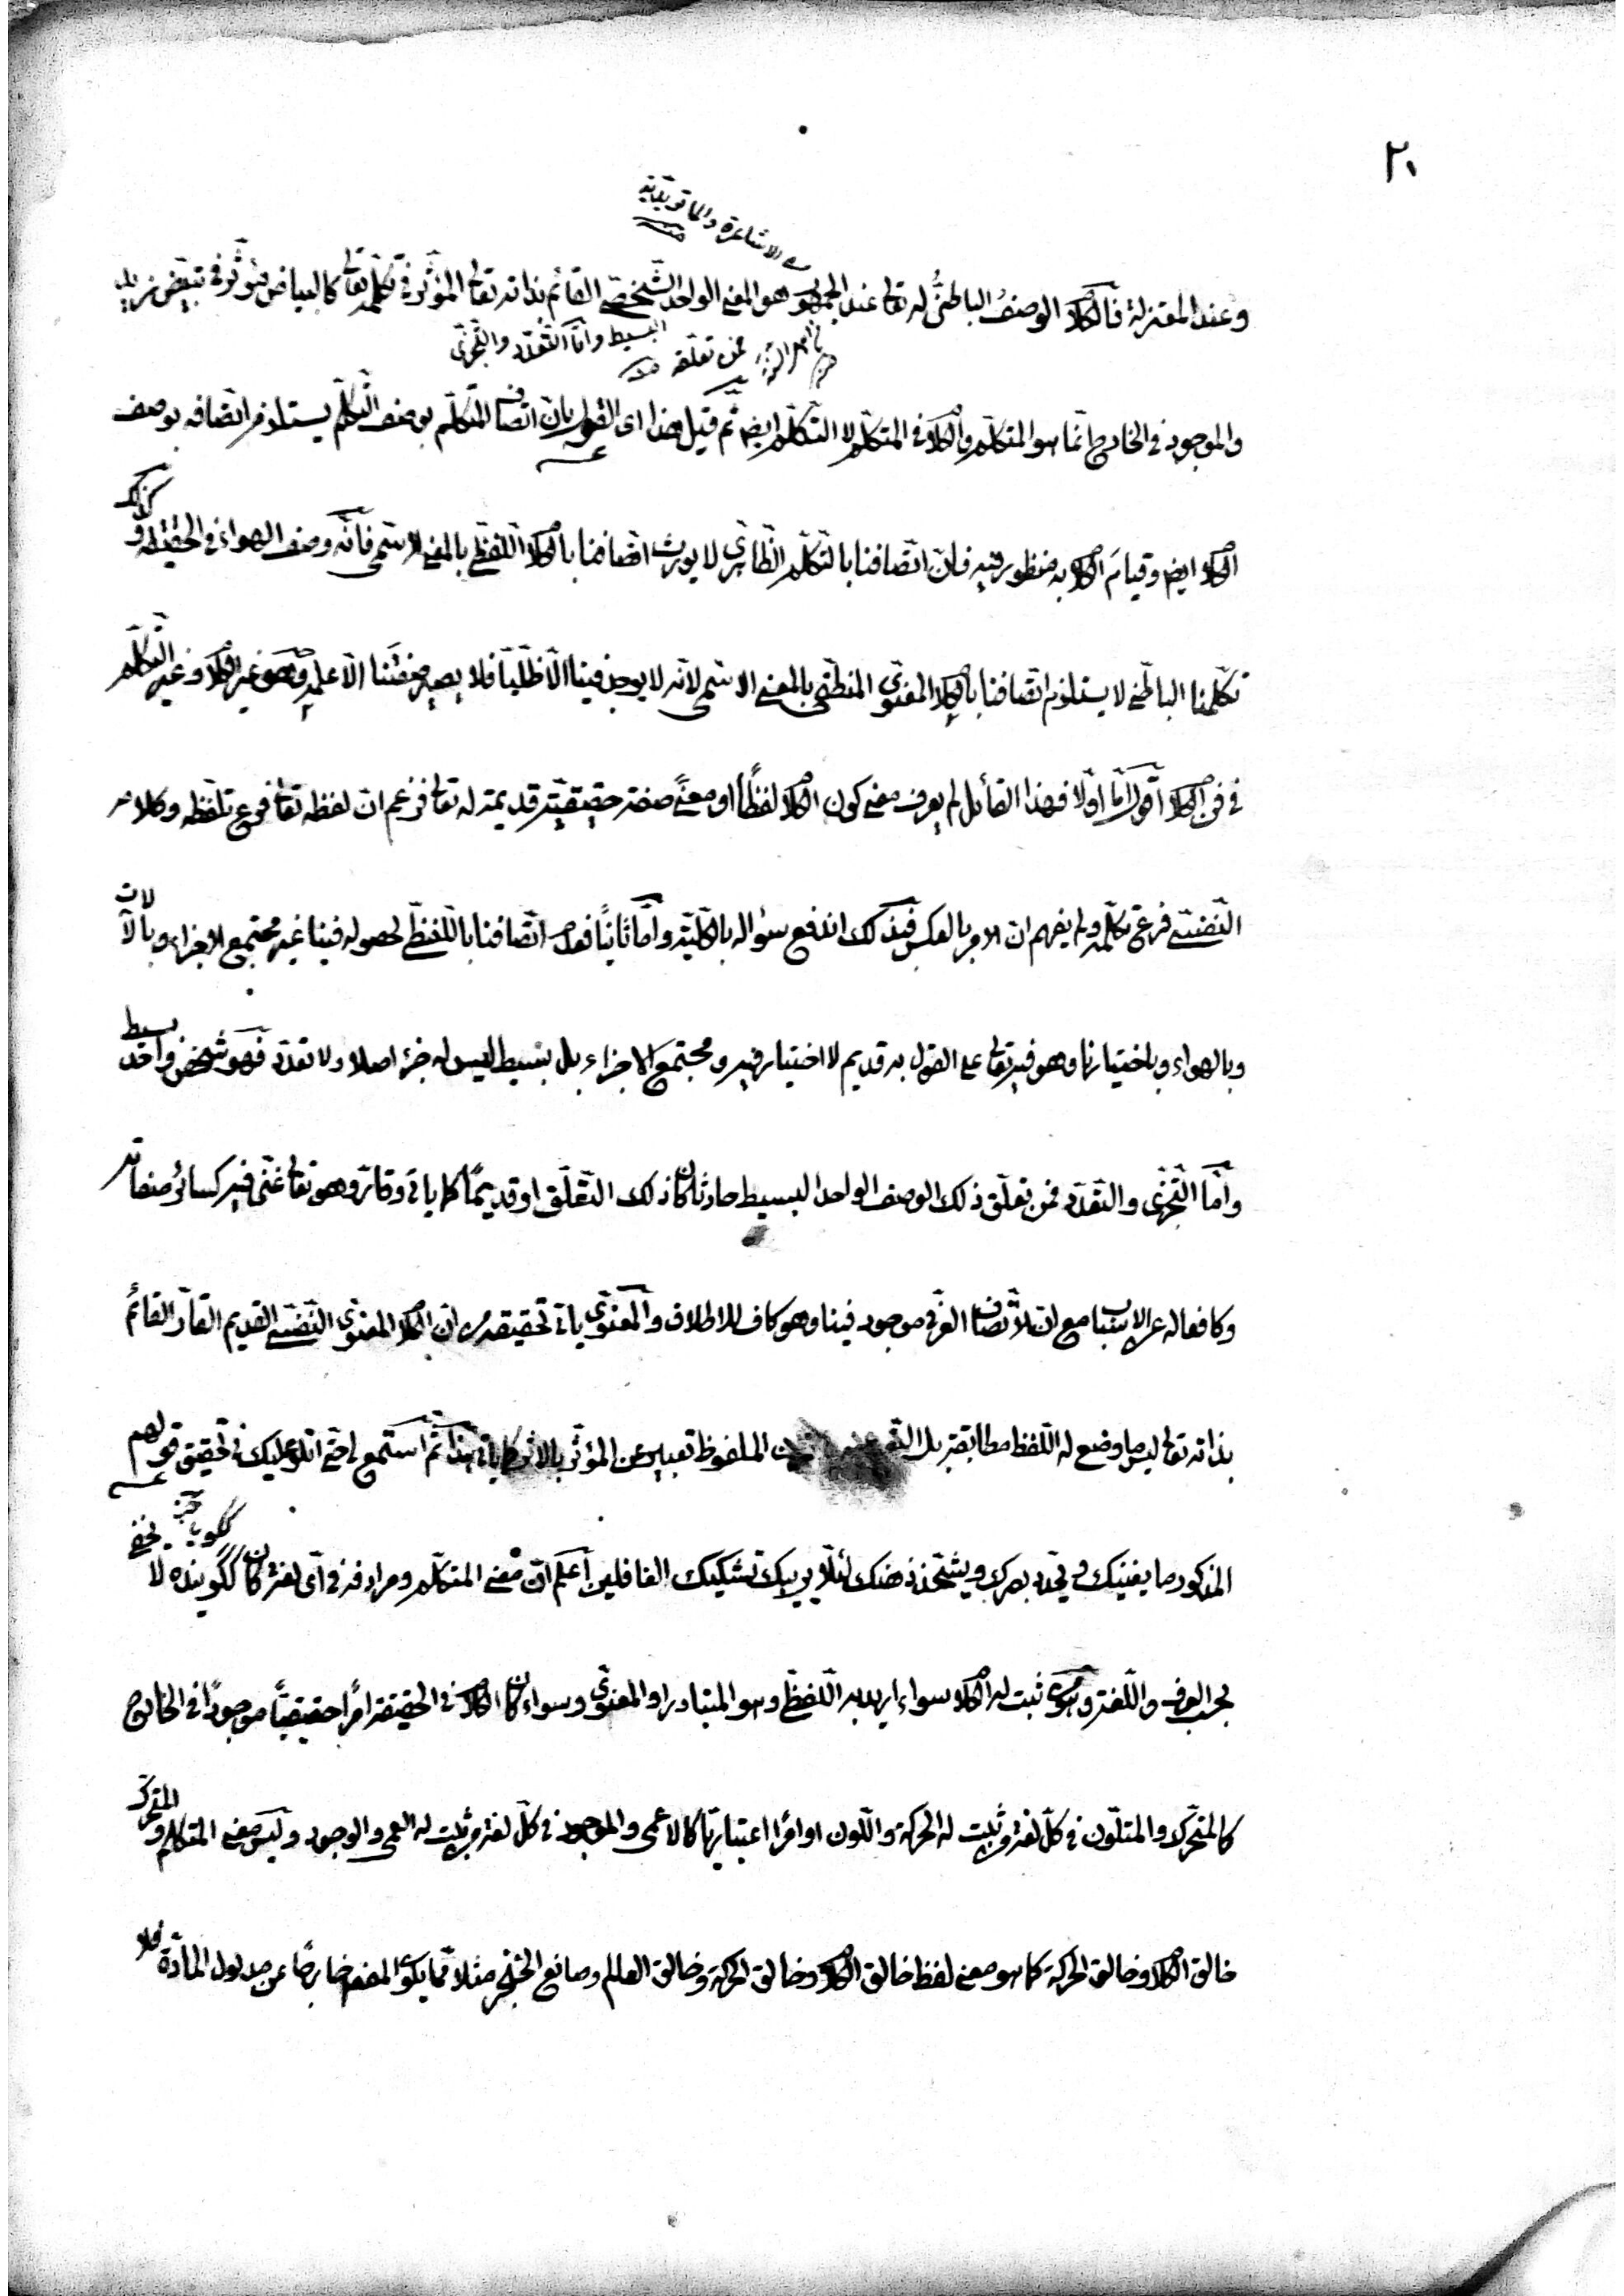 ٢٠
من الاشاعرة والماتريدية
منه
وعند المعتزلة فالكلام الوصف الباطنيّ له تعالى عند الجمهور هو المعنى الواحد الشخصي القائم بذاته تعالى المؤثر في تكلمه تعالى كالبياض مؤثر في تبييض زيد
البسيط وامّا التعدّد والتجزّي
فمن تعلقه
والموجود في الخارج انّما هو المتكلم والكلام في المتكلم لا التكلّم ايضا ثم قيل هذا اى القول بان اتصاف المتكلم بوصف التكلّم يستلزم اتصافه بوصف
الكلام ايضا وقيامَ الكلام به منظور فيه فانّ اتّصافنا بالتكلّم الظاهرى لا يورث اتصافنا بالكلام اللفظيّ بالمعنى الاسمى فانّه وصف الهواء في الحقيقة و
كذلك
تكلّمنا الباطني لا يستلزم اتصافنا بالكلام المعنوى المنطقى بالمعنى الاسمى لانّه لا يوجد فينا الّا ظلّيّا فلا يصير صفتنا الّا علمه وهو غير الكلام وغير التكلّم
في فن الكلام اقول امّا اولا فهذا القائل لم يعرف معنى كون الكلام لفظاً او معنىً صفة حقيقيّة قديمة له تعالى فزعم ان لفظه تعالى فرع تلفظه وكلامه
النّفسىّ فرع تكلّمه ولم يفهم ان الامر بالعكس فبذلك اندفع سؤاله بالكليّة وامّا ثانيًا فعدم اتّصافنا باللّفظيّ لحصوله فينا غير مجتمع الاجزاء وبالآلات
وبالهواء وباختيارنا وهو فيه تعالى على القول به قديم لا اختيار فيه ومجتمع الاجزاء بل بسيط ليس له جزء اصلا ولا تعدّد فهو شخص واحد بسيط
وامّا التجزّى والتعدّد فمن تعلّق ذلك الوصف الواحد البسيط حادثا كان ذلك التعلّق او قديمًا كما يأتى وقارّ وهو تعالى غنىّ فيه كسائر صفاته
وكافعاله عن الاسباب مع ان الاتصاف العرفى موجود فينا وهو كاف للاطلاق والمعنوىّ يأتى تحقيقه من ان الكلام المعنوى النّفسىّ القديم القارّ القائم
بذاته تعالى ليس ما وضع له اللّفظ مطابقة بل الملفوظ تعبير عن المؤثّر بالاثر كما يأتى هذا ثم استمع حتى اتلو عليك في تحقيق قولهم
المذكور ما يغنيك ويحدّد بصرك ويشحّذ ذهنك لئلّا يريبك تشكيك الغافلين اعلم ان معنى المتكلّم ومرادفه في اىّ لغة كان ككوينده لا
يخفى
بحسب العرف واللّغة من ثبت له الكلام سواء اريد به اللّفظىّ وهو المتبادر او المعنوىّ وسواء كان الكلام في الحقيقة امرًا حقيقيّاً موجودًا في الخارج
كالمتحرّك والمتلّون في كلّ لغة من ثبت له الحركة واللّون او امرًا اعتباريّا كالاعمى والموجود في كلّ لغة من ثبت له العمى والوجود وليس معنى المتكلّم و
المتحرّك
خالق الكلام وخالق الحركة كما هو معنى لفظ خالق الكلام وخالق الحركة وخالق العالم وصانع الخنجر مثلا ممّا يكون المفهوم خارجًا عن مدلول المادّة فلا